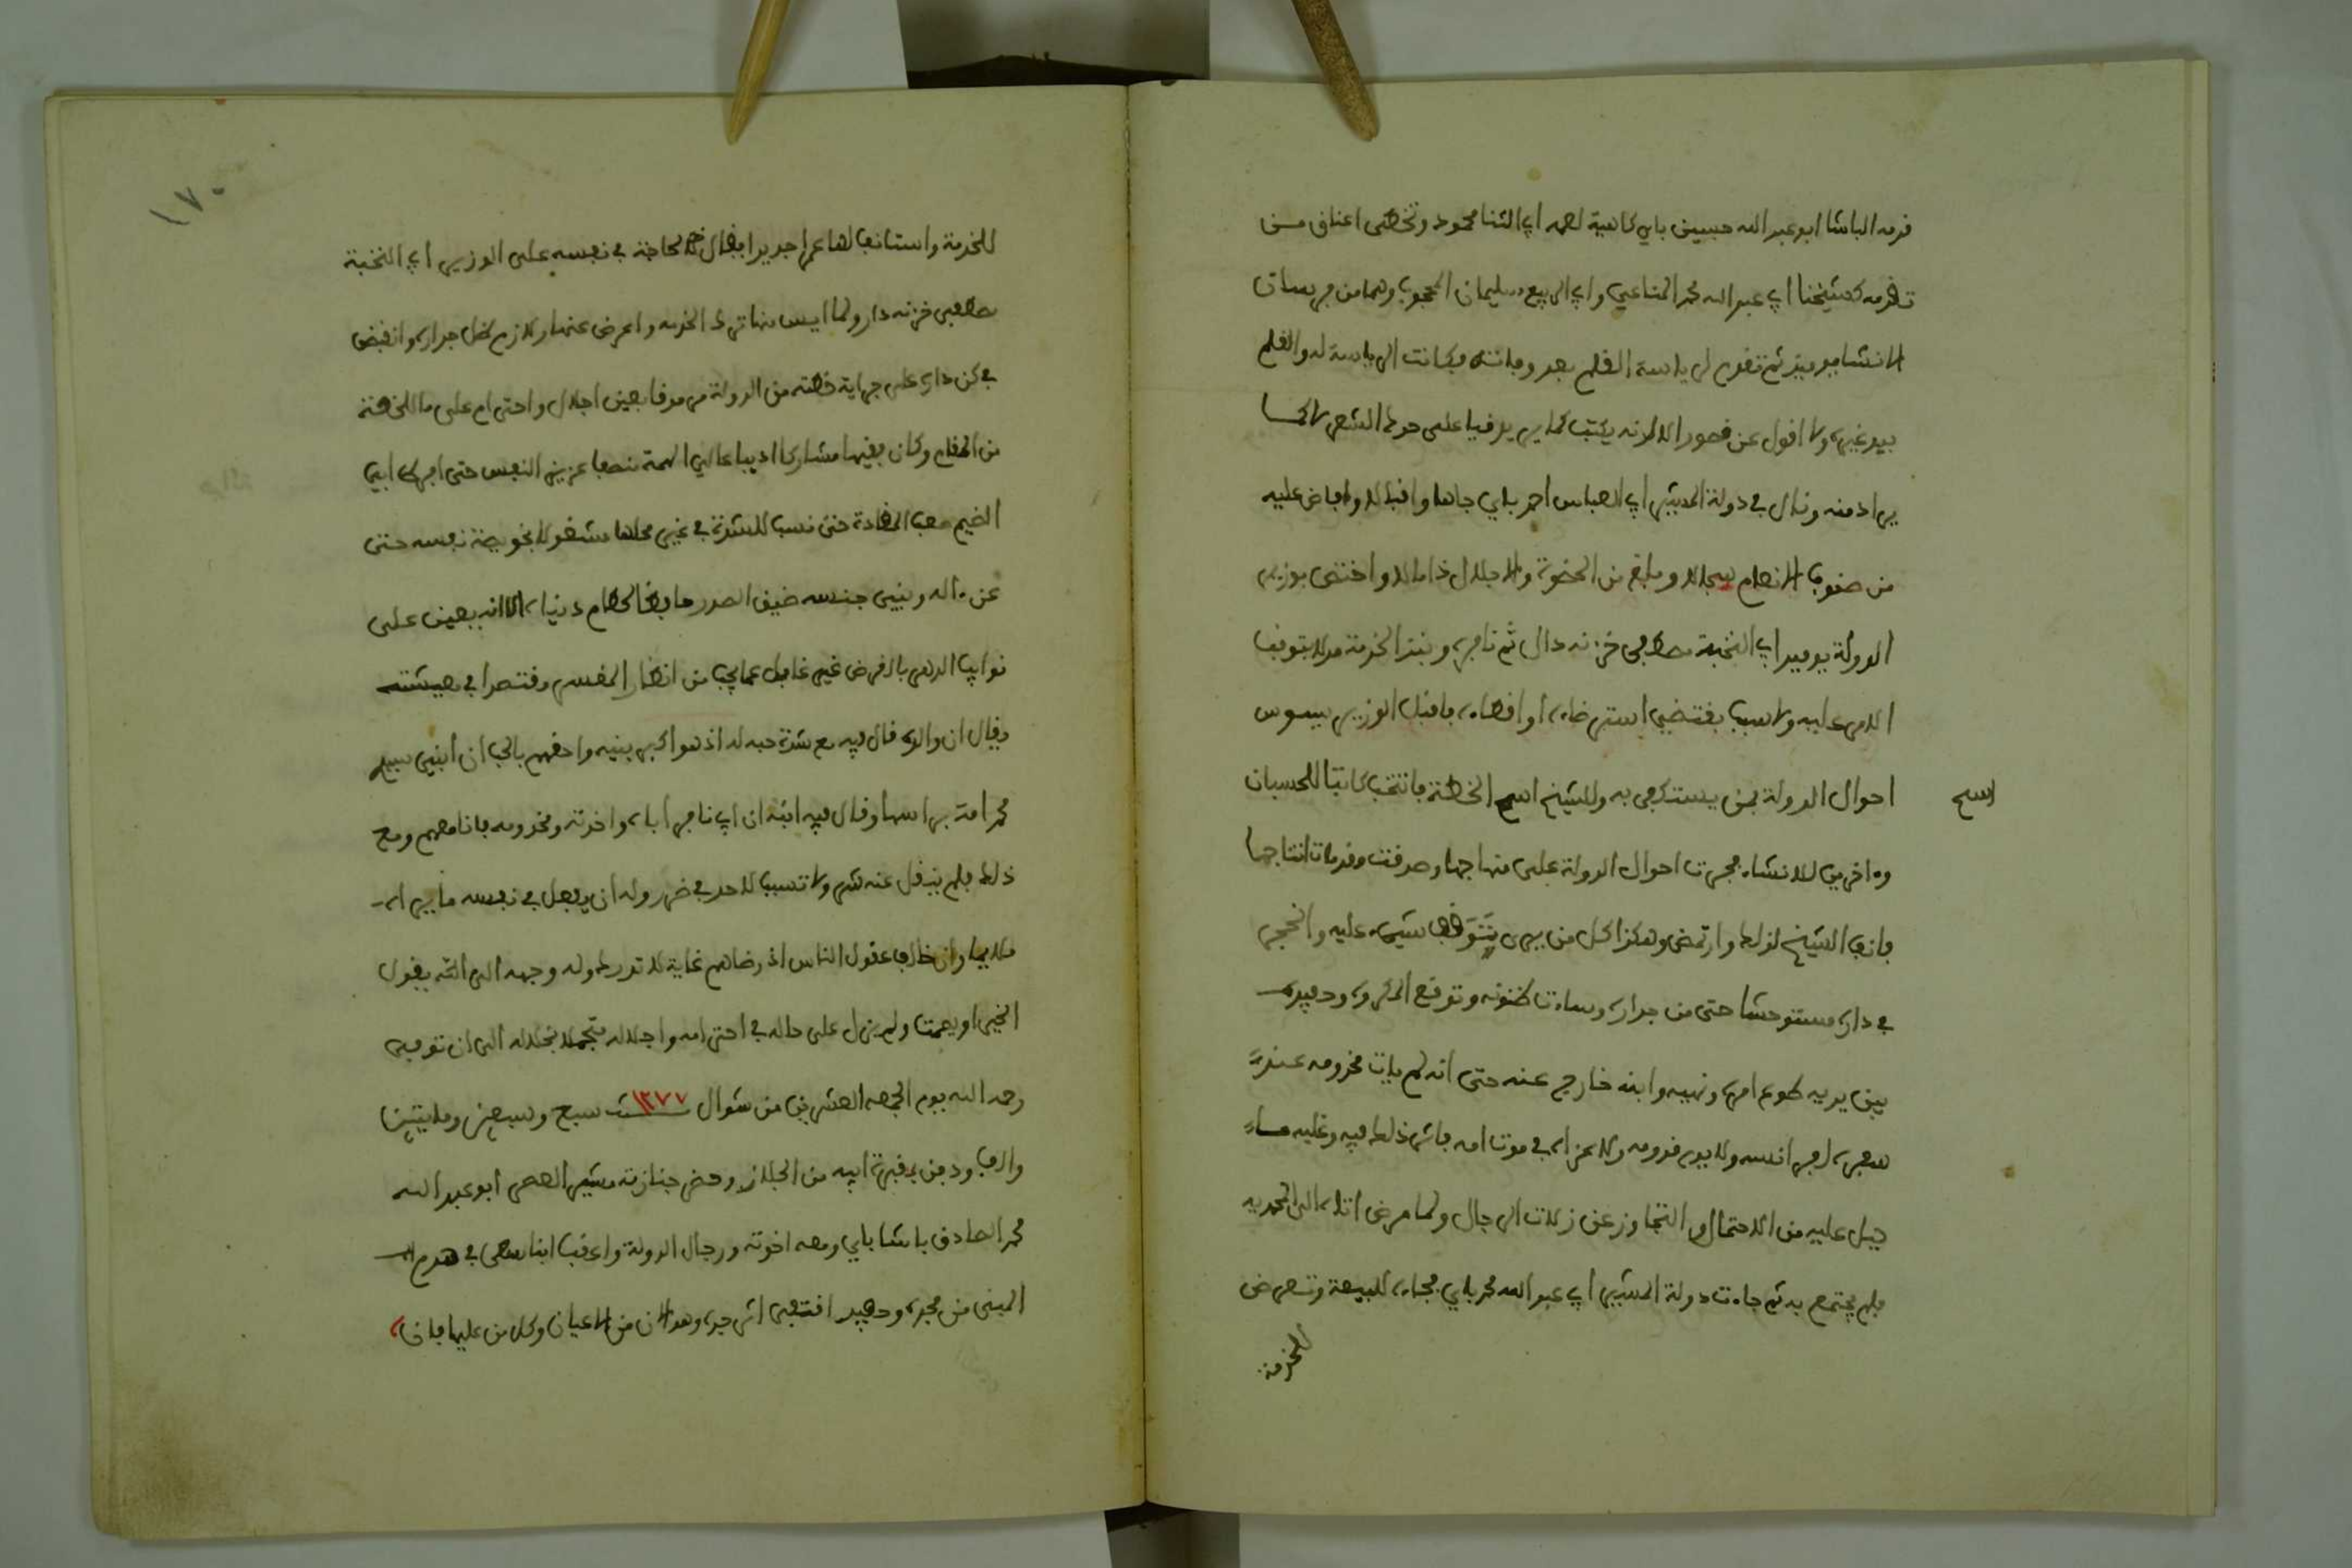 قدمه الباشا ابو عبد الله حسين باي كاهية لصهره ابي الثنا محمود وتخطى اعناق من
تقدمه كشيخنا ابي عبد الله محمد المناعي وابي الربيع سليمان المحجوب وهما من فرسان
الانشا يوميذ ثم تقدم لرياسة القلم بعد وفاته فكانت الرياسة له والقلم
بيد غيره ولا اقول عن قصور الا انه يكتب كما يريد فيا على حوك الشعر لا كما
يراد منه ونال في دولة المشير ابي العباس احمد باي جاها واقبالا وافاض عليه
من صنوف الانعام سجالا وبلغ من الحضوة والاجلال ذا مالا واختص بوزير
الدولة يوميد ابي النخبة مصطفى خزنه دال ثم نافره ونبذ الخدمة مدلا بتوقف
الامر عليه ولا سبب يقتضي استرضاءه او اقصاءه فاقبل الوزير يسوس
احوال الدولة بمن يستكفي به وللشيخ اسم الخطة فانتخب كاتبا للحسبان
اسم
وءاخرين للانشاء فجرت احوال الدولة على منهاجها وصدقت مقدمات انتاجها
فانف الشيخ لذلك وارتمض وهكذا كل من يرى يتوقف شيء عليه وانحجر
في داره مستوحشا حتى من جداره وساءت ظنونه وتوقع المكروه وحفيده
بين يديه طوع امره ونهيه وابنه خارج عنه حتى انه لم يات مخدومه عند
سفره اظهر انسه ولا يوم قدومه ولا عزاه في موت امه فاثر ذلك فيه وغلبه ما
جبل عليه من الاحتمال والتجاوز عن زلات الرجال ولما مرض اتاه الى المحمديه
فلم يجتمع به ثم جاءت دولة المشير ابي عبد الله محمد باي فجاءه للبيعة وتعرض
للخدمة
١٧٠
للخدمة واستانف لها عمرا جديدا فقال لحاجة في نفسه على الوزير ابي النخبة
مصطفى خزنه دار ولما ايس منها ترك الخدمه واعرض عنها ولازم ظل جداره وانقبض
في كن داره على جراية خطته من الدولة مرموقا بعين اجلال واحترام على ما للخطة
من المقام وكان فقيها مشاركا اديبا عالي الهمة منصفا عزيز النفس حتى افرط ابي
الضيم صعب المقادة حتى نسب للشدة في غير محلها مشغولا بخويصة نفسه حتى
عن ءاله وبني جنسه ضيق الصدر حافظا لحطام دنياه الا انه يعين على
نوايب الدهر بالقرض غير غافل عما يجب من انظار المفسر مقتصدا في معيشته
ويقال ان والده قال فيه مع شدة حبه له اذ هو اكبر بنيه واحقهم بالحب ان ابني سي
محمد امة براسها وقال فيه ابنه ان ابي نافر اباه واخوته ومخدومه فانا معهم ومع
ذلك فلم ينقل عنه شر ولا تسبب لاحد في ضرر وله ان يفعل في نفسه ما يراه
ملايما وان خالف عقول الناس اذ رضاهم غاية لا تدرك وله وجهه الى الله يقول
الخير او يصمت ولم يزل على حاله في احترامه واجلاله متجملا بخلاله الى ان توفي
رحمه الله يوم الجمعه العشرين من شوال سنة ١٢٧٧ سبع وسبعين ومايتين
والف ودفن بمقبرة ابيه من الجلاز وحضر جنازته مشير العصر ابو عبد الله
محمد الصادق باشا باي ومعه اخوته ورجال الدولة واعقب ابنا سعى في هدم
المبنى من مجده وحفيد اقتفى اثر جده وهو الان من الاعيان وكل من عليها فان